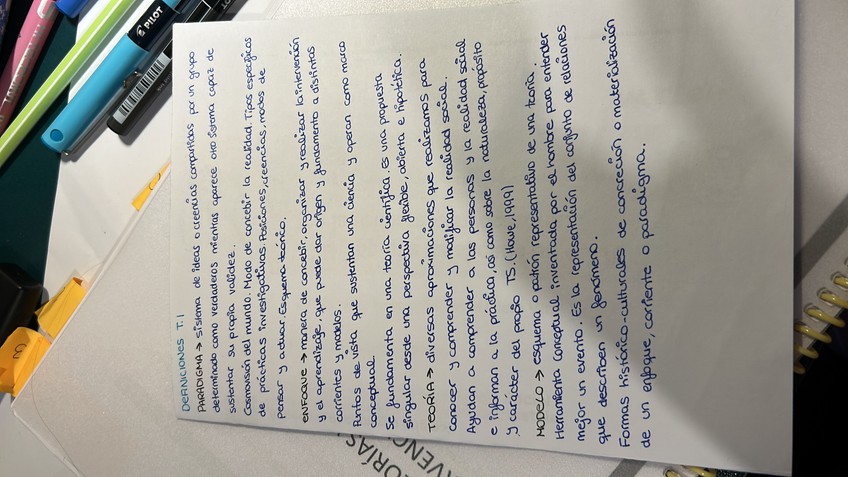 DEFINICIONES T.1
PARADIGMA → sistema de ideas o creencias compartidas por un grupo
determinado como verdaderos mientras aparece otro sistema capaz de
sustentar su propia validez.
Cosmovisión del mundo. Modo de concebir la realidad. Tipos específicos
de prácticas investigativas. Posiciones, creencias, modos de
pensar y actuar. Esquema teórico.
ENFOQUE → manera de concebir, organizar y realizar la intervención
y el aprendizaje, que puede dar origen y fundamento a distintas
corrientes y modelos.
Puntos de vista que sustentan una ciencia y operan como marco
conceptual.
Se fundamenta en una teoría científica. es una propuesta
singular desde una perspectiva flexible, abierta e hipotética.
TEORIA → diversas aproximaciones que realizamos para
conocer y comprender y modificar la realidad social.
Ayudan a comprender a las personas y la realidad social
e informan a la práctica, así como sobre la naturaleza, propósito
y carácter del propio TS. (Howe, 1999)
MODELO → esquema o patrón representativo de una teoría.
Herramienta conceptual inventada por el hombre para entender
mejor un evento. Es la representación del conjunto de relaciones
que describen un fenómeno.
Formas histórico-culturales de concreción o materialización
de un enfoque, corriente o paradigma.
PILOT